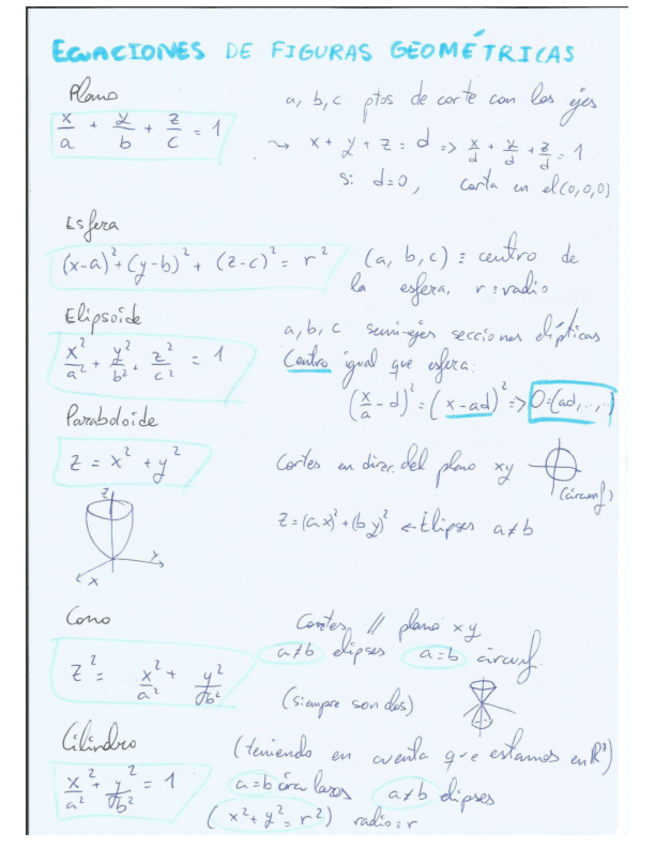 ECUACIONES DE FIGURAS GEOMÉTRICAS
Plano
x/a + y/b + z/c = 1
a, b, c ptos de corte con los ejes
↝ x + y + z = d => x/d + y/d + z/d = 1
Si d=0, corta en el (0,0,0)
Esfera
(x-a)² + (y-b)² + (z-c)² = r²
(a, b, c) ≡ centro de
la esfera, r ≡ radio
Elipsoide
x²/a² + y²/b² + z²/c² = 1
a, b, c semi-ejes secciones elípticas
Centro igual que esfera:
(x/a - d)² = (x-ad)² => O=(ad,..,..)
Paraboloide
z = x² + y²
Cortes en direc. del plano xy
(circunf)
z = (ax)² + (by)² ← Elipses a≠b
z
y
x
Cono
z² = x²/a² + y²/b²
Cortes // plano xy
a≠b elipses a=b circunf.
(siempre son dos)
Cilindro
x²/a² + y²/b² = 1
(teniendo en cuenta que estamos en ℝ³)
a=b circulares a≠b elipses
(x² + y² = r²) radio=r